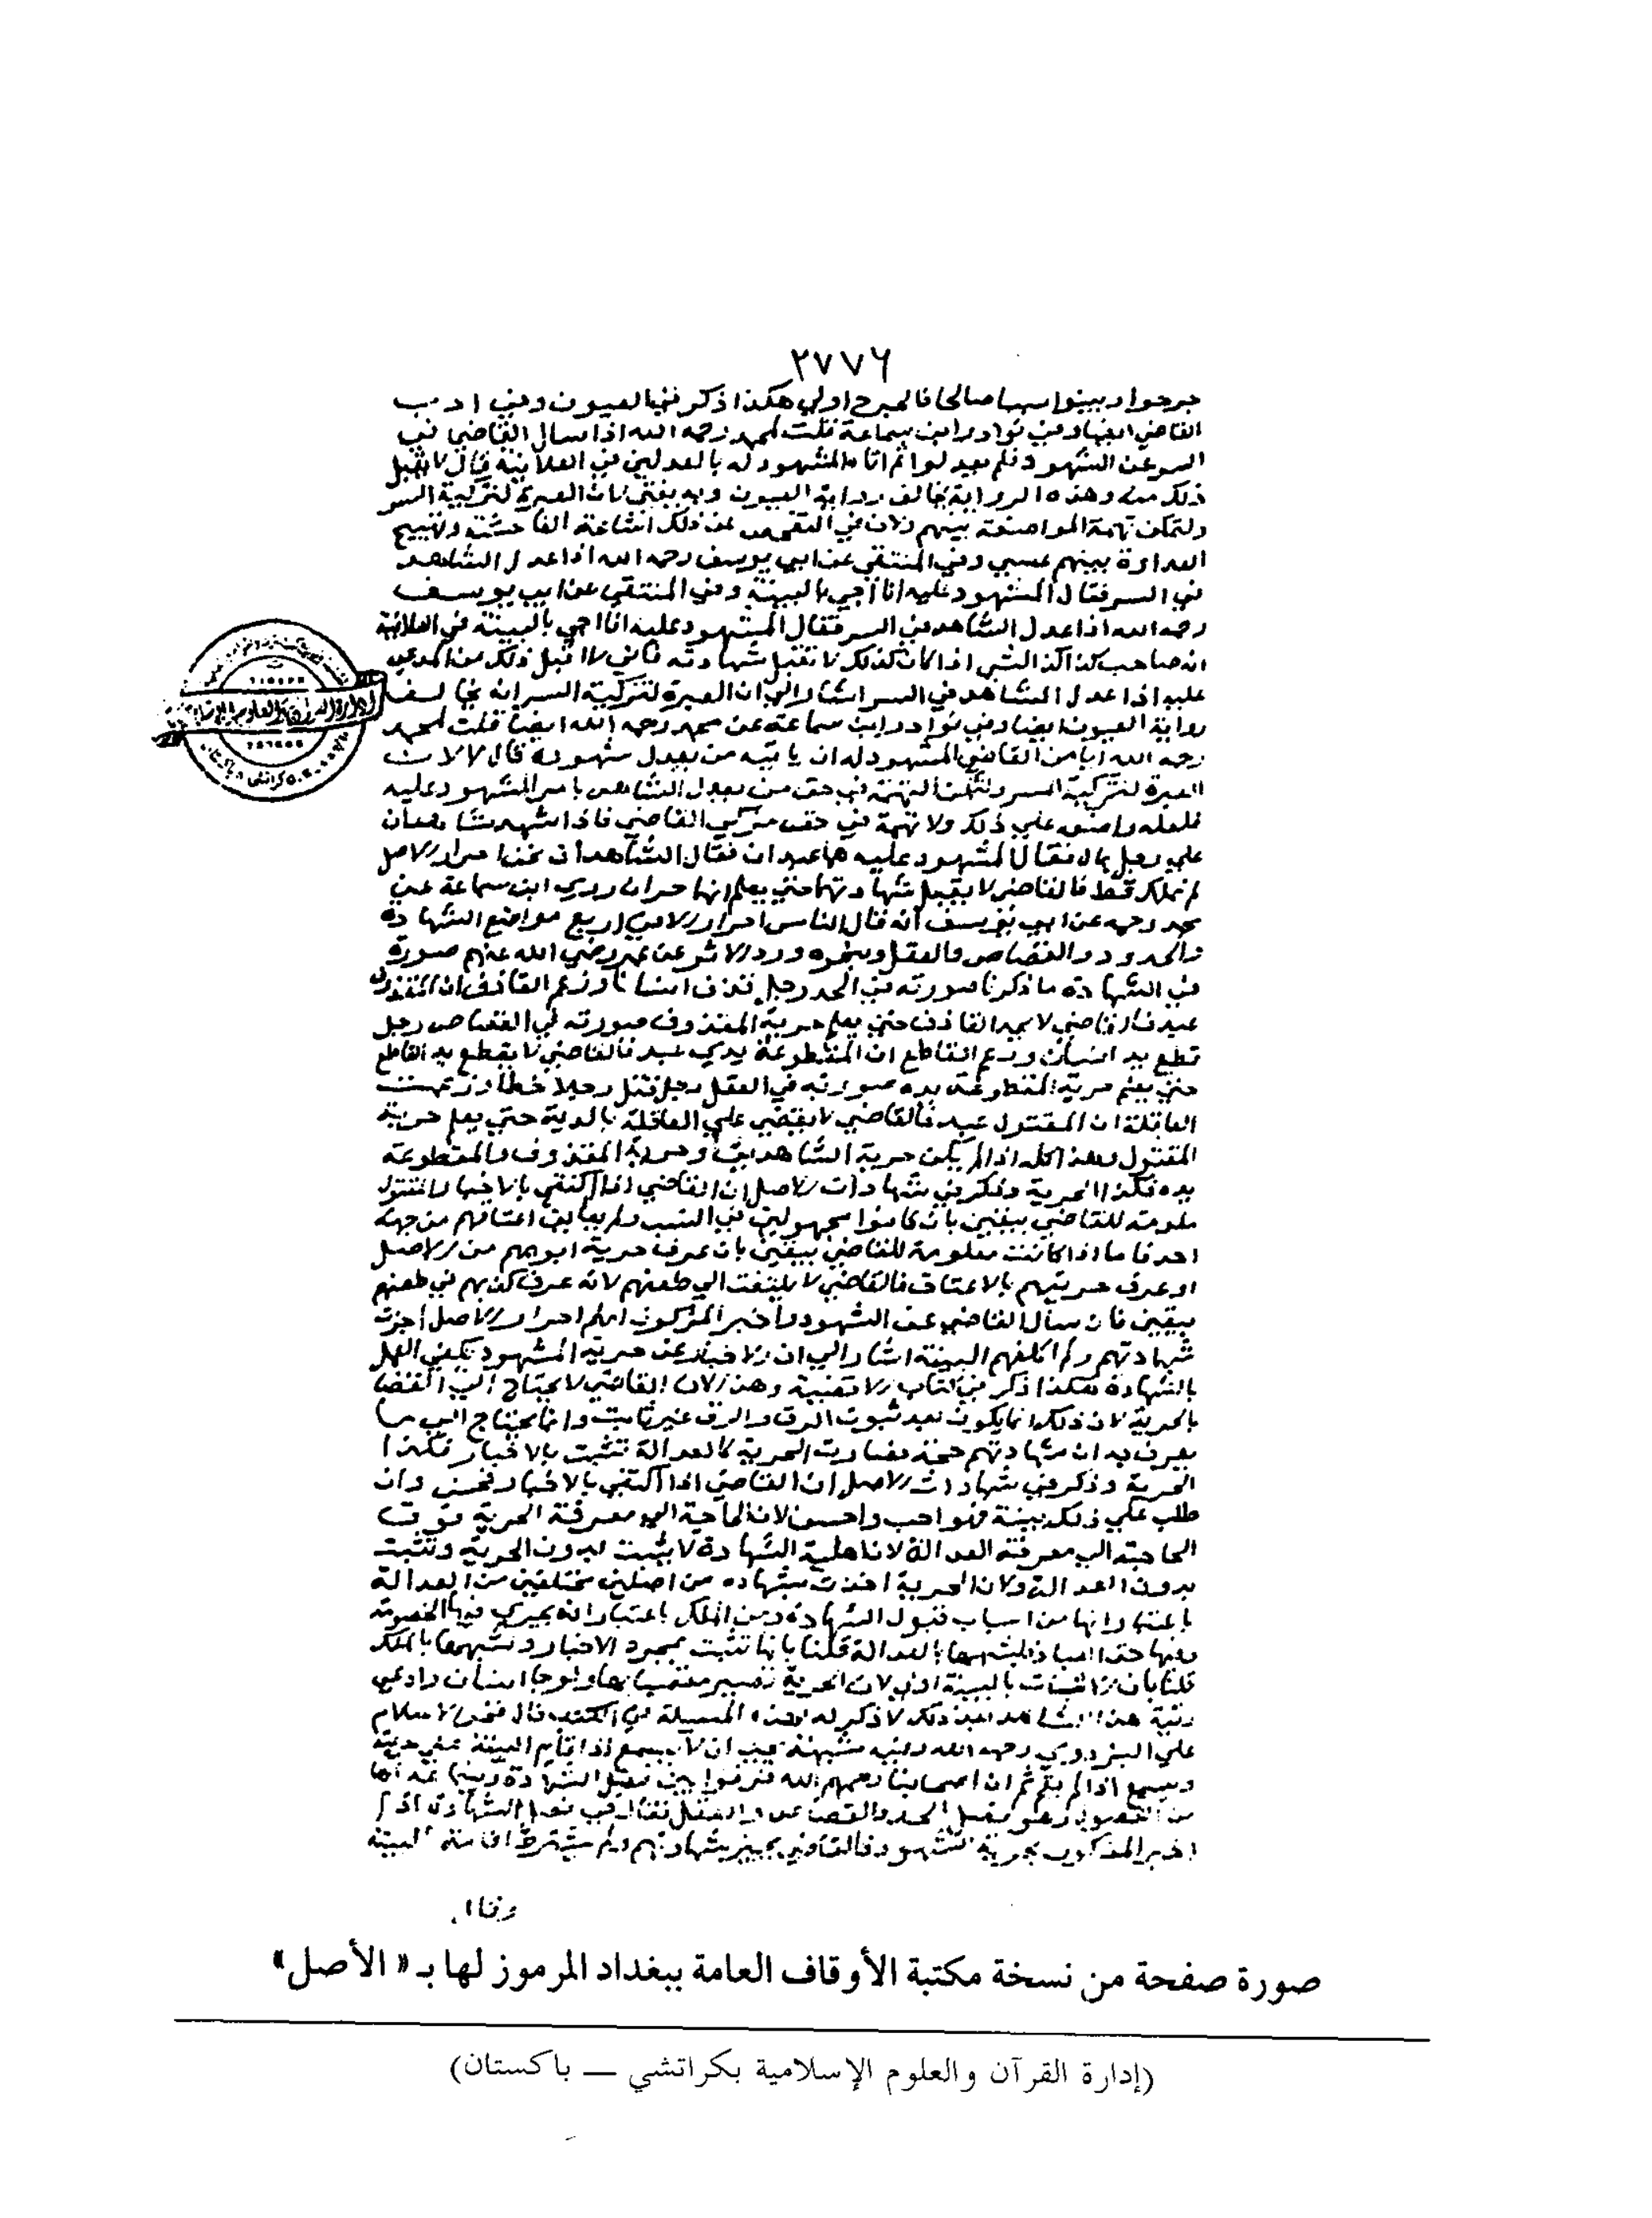 ٢٧٧٦
جرحوا وبينوا سببا صالحا فالجرح اولي هكذا ذكر في العيون وفي ادب
القاضي ايضا وفي نوادر ابن سماعة قلت لمحمد رحمه الله اذا سال القاضي في
السر عن الشهود فلم يعدلوا ثم اتاه المشهود له بالعدلين في العلانية قال لا اقبل
ذلك منه وهذه الرواية تخالف رواية العيون وبه يفتي لان العبرة لتزكية السر
ولتمكن تهمة المواضعة بينهم ولان في التفحص عن ذلك اشاعة الفاحشة وتهييج
العداوة بينهم عسي وفي المنتقي عن ابي يوسف رحمه الله اذا عدل الشاهد
في السر فقال المشهود عليه انا اجي بالبينة وفي المنتقي عن ابي يوسف
رحمه الله اذا عدل الشاهد في السر فقال المشهود عليه انا اجي بالبينة في العلانية
انه صاحب كذا الشي اذا كان كذلك لا تقبل شهادته فاني لا اقبل ذلك من المدعي
عليه اذا عدل الشاهد في السر اشار الي ان العبرة لتزكية السر انه يخالف
رواية العيون ايضا وفي نوادر ابن سماعة عن محمد رحمه الله ايضا قلت لمحمد
رحمه الله ايامر القاضي المشهود له ان ياتيه من يعدل شهوده قال لا لان
العبرة لتزكية السر ولتمكن التهمة في حق من يعدل الشاهد بامر المشهود عليه
فلعله واضعه علي ذلك ولا تهمة في حق مزكي القاضي فاذا شهد شاهدان
علي رجل بمال فقال المشهود عليه هما عبدان فقال الشاهدان نحن احرار الاصل
لم نملك قط فالقاضي لا يقبل شهادتهما حتي يعلم انهما حران روي ابن سماعة عن
محمد رحمه عن ابي يوسف انه قال الناس احرار الا في اربع مواضع الشهادة
والحدود والقصاص والعقل وبنحوه ورد الاثر عن عمر رضي الله عنهم صورة
في الشهادة ما ذكرنا صورته في الحد رجل قذف انسانا وزعم القاذف ان المقذوف
عبد فالقاضي لا يحد القاذف حتي يعلم حرية المقذوف صورته في القصاص رجل
قطع يد انسان وزعم القاطع ان المقطوعة يده عبد فالقاضي لا يقطع يد القاطع
حتي يعلم حرية المقطوعة يده صورته في العقل رجل قتل رجلا خطا وزعمت
العاقلة ان المقتول عبد فالقاضي لا يقضي علي العاقلة بالدية حتي يعلم حرية
المقتول وهذا كله اذا لم يكن حرية الشاهدين وحرية المقذوف والمقطوعة
يده وكذا الحرية وذكر في شهادات الاصل ان القاضي اذا اكتفي بالاخبار المقتول
معلومة للقاضي بيقين بان كانوا مجهولين في النسب ولم يعاين اعتاقهم من جهة
احد فاما اذا كانت معلومة للقاضي بيقين بان عرف حرية ابويهم من الاصل
او عرف حريتهم بالاعتاق فالقاضي لا يلتفت الي طعنهم لانه عرف كذبهم في طعنهم
بيقين فان سال القاضي عن الشهود واخبر المزكون انهم احرار الاصل اجزت
شهادتهم ولم اكلفهم البينة اشار الي ان الاخبار عن حرية المشهود تكفي العمل
بالشهادة هكذا ذكر في كتاب الاقضية وهذا لان القاضي لا يحتاج الي القضا
بالحرية لان ذلك انما يكون بعد ثبوت الرق والرق غير ثابت وانما يحتاج الي ما
يعرف به ان شهادتهم حجة فصارت الحرية كالعدالة تثبت بالاخبار فكذا
الحرية وذكر في شهادات الاصل ان القاضي اذا اكتفي بالاخبار فحسن وان
طلب علي ذلك بينة فهو احب واحسن لان الحاجة الي معرفة الحرية فوق
الحاجة الي معرفة العدالة لان اهلية الشهادة لا يثبت بدون الحرية وتثبت
بدون العدالة ولان الحرية اخذت شبها من اصلين مختلفين من العدالة
باعتبار انها من اسباب قبول الشهادة ومن الملك باعتبار انه يجري فيها الخصومة
وفيها حق العباد فلشبهها بالعدالة قلنا بانها تثبت بمجرد الاخبار ولشبهها بالملك
قلنا بان الاثبات بالبينة اولي لان الحرية تصير مقضيا بها ولو جا انسان وادعي
رقبة هذا الشاهد بعد ذلك لا ذكر لهذه المسيلة في الكتب قال فخر الاسلام
علي البزدوي رحمه الله وفيه شبهة يجب ان لا يسمع اذا اقام البينة علي حريته
ويسمع اذا لم يقم ثم ان اصحابنا رحمهم الله فرقوا بين فصل الشهادة وبين ما عداها
من الفصول وهو فصل الحد والقصاص والعقل فقال في فصل الشهادة اذا
اخبر المزكون بحرية الشهود فالقاضي يجيز شهادتهم ولم يشترط اقامة البينة
وفيما
صورة صفحة من نسخة مكتبة الأوقاف العامة ببغداد المرموز لها بـ «الأصل»
(إدارة القرآن والعلوم الإسلامية بكراتشي — باكستان)